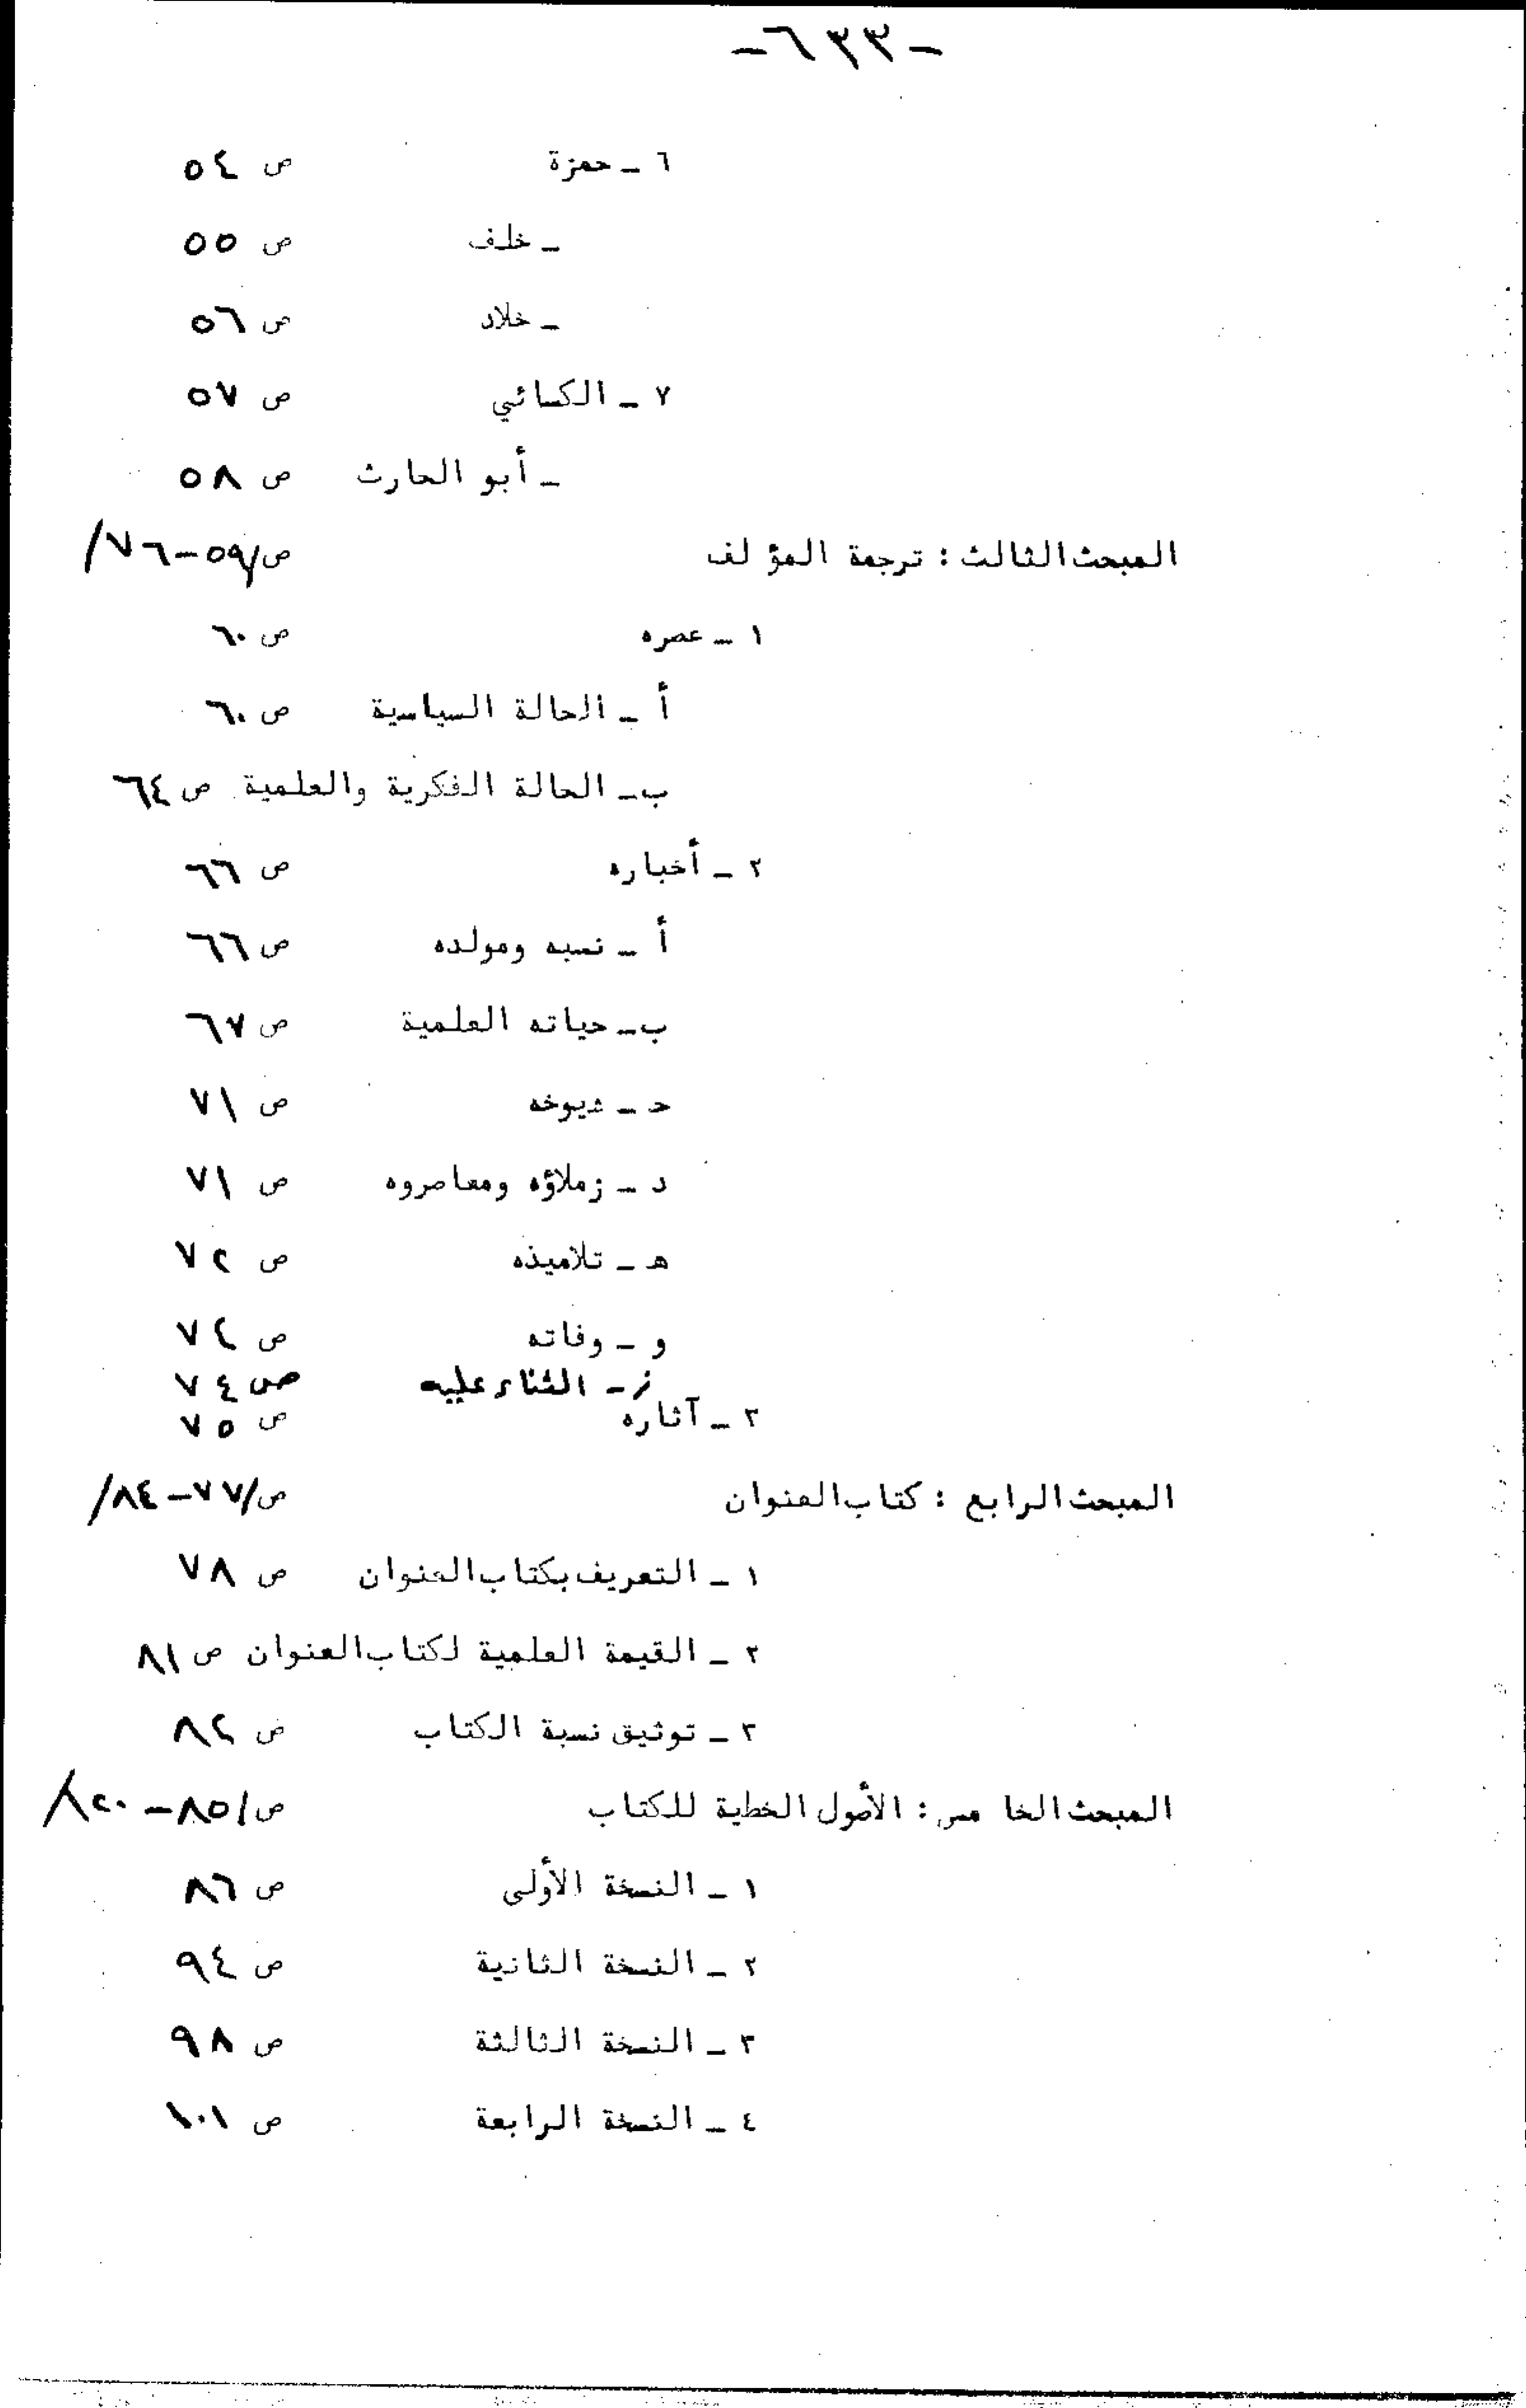 -٦٣٣-
٦ - حمزة ص ٥٤
- خلف ص ٥٥
- خلاد ص ٥٦
٧ - الكسائي ص ٥٧
- أبو الحارث ص ٥٨
المبحث الثالث : ترجمة المؤلف ص/٥٩-٧٦/
١ - عصره ص ٦٠
أ - الحالة السياسية ص ٦٠
ب - الحالة الفكرية والعلمية ص ٦٤
٢ - أخباره ص ٦٦
أ - نسبه ومولده ص ٦٦
ب - حياته العلمية ص ٦٧
حـ - شيوخه ص ٧١
د - زملاؤه ومعاصروه ص ٧١
هـ - تلاميذه ص ٧٢
و - وفاته ص ٧٤
ز - الثناء عليه ص ٧٤
٣ - آثاره ص ٧٥
المبحث الرابع : كتاب العنوان ص/٧٧-٨٤/
١ - التعريف بكتاب العنوان ص ٧٨
٢ - القيمة العلمية لكتاب العنوان ص ٨١
٣ - توثيق نسبة الكتاب ص ٨٢
المبحث الخامس : الأصول الخطية للكتاب ص/٨٥-
١ - النسخة الأولى ص ٨٦
٢ - النسخة الثانية ص ٩٤
٣ - النسخة الثالثة ص ٩٨
٤ - النسخة الرابعة ص ١٠١